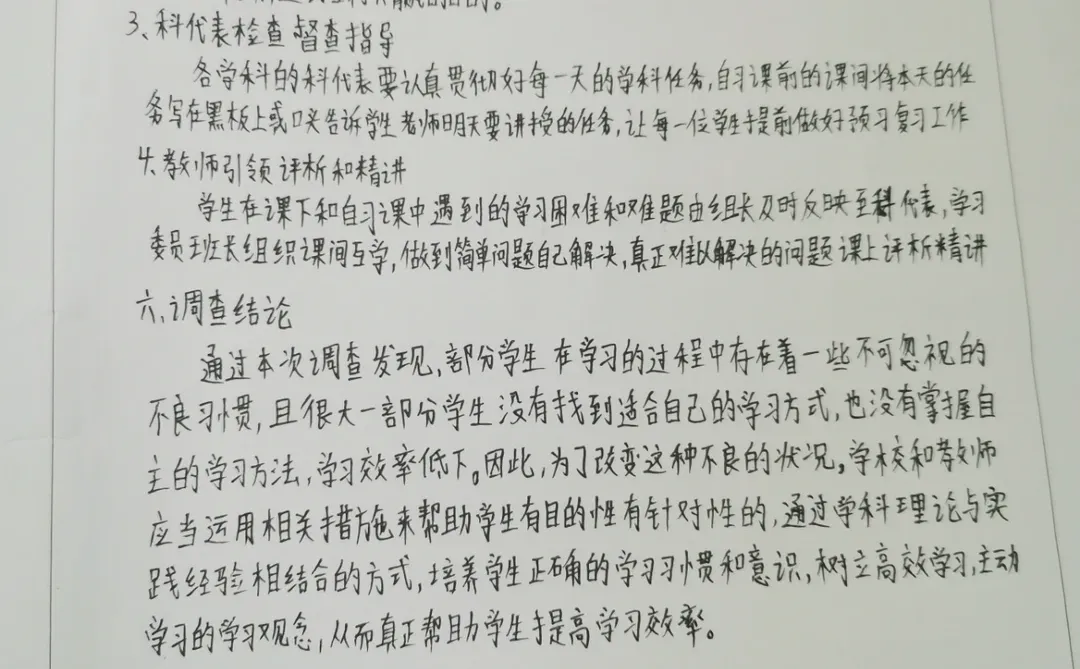 的。
3、科代表检查督查指导
各学科的科代表要认真贯彻好每一天的学科任务,自习课前的课间将本天的任
务写在黑板上或口头告诉学生老师明天要讲授的任务,让每一位学生提前做好预习复习工作
4、教师引领评析和精讲
学生在课下和自习课中遇到的学习困难和难题由组长及时反映至科代表,学习
委员班长组织课间互学,做到简单问题自己解决,真正难以解决的问题课上评析精讲
六、调查结论
通过本次调查发现,部分学生在学习的过程中存在着一些不可忽视的
不良习惯,且很大一部分学生没有找到适合自己的学习方式,也没有掌握自
主的学习方法,学习效率低下。因此,为了改变这种不良的状况。学校和教师
应当运用相关措施来帮助学生有目的性有针对性的,通过学科理论与实
践经验相结合的方式,培养学生正确的学习习惯和意识,树立高效学习,主动
学习的学习观念,从而真正帮助学生提高学习效率。